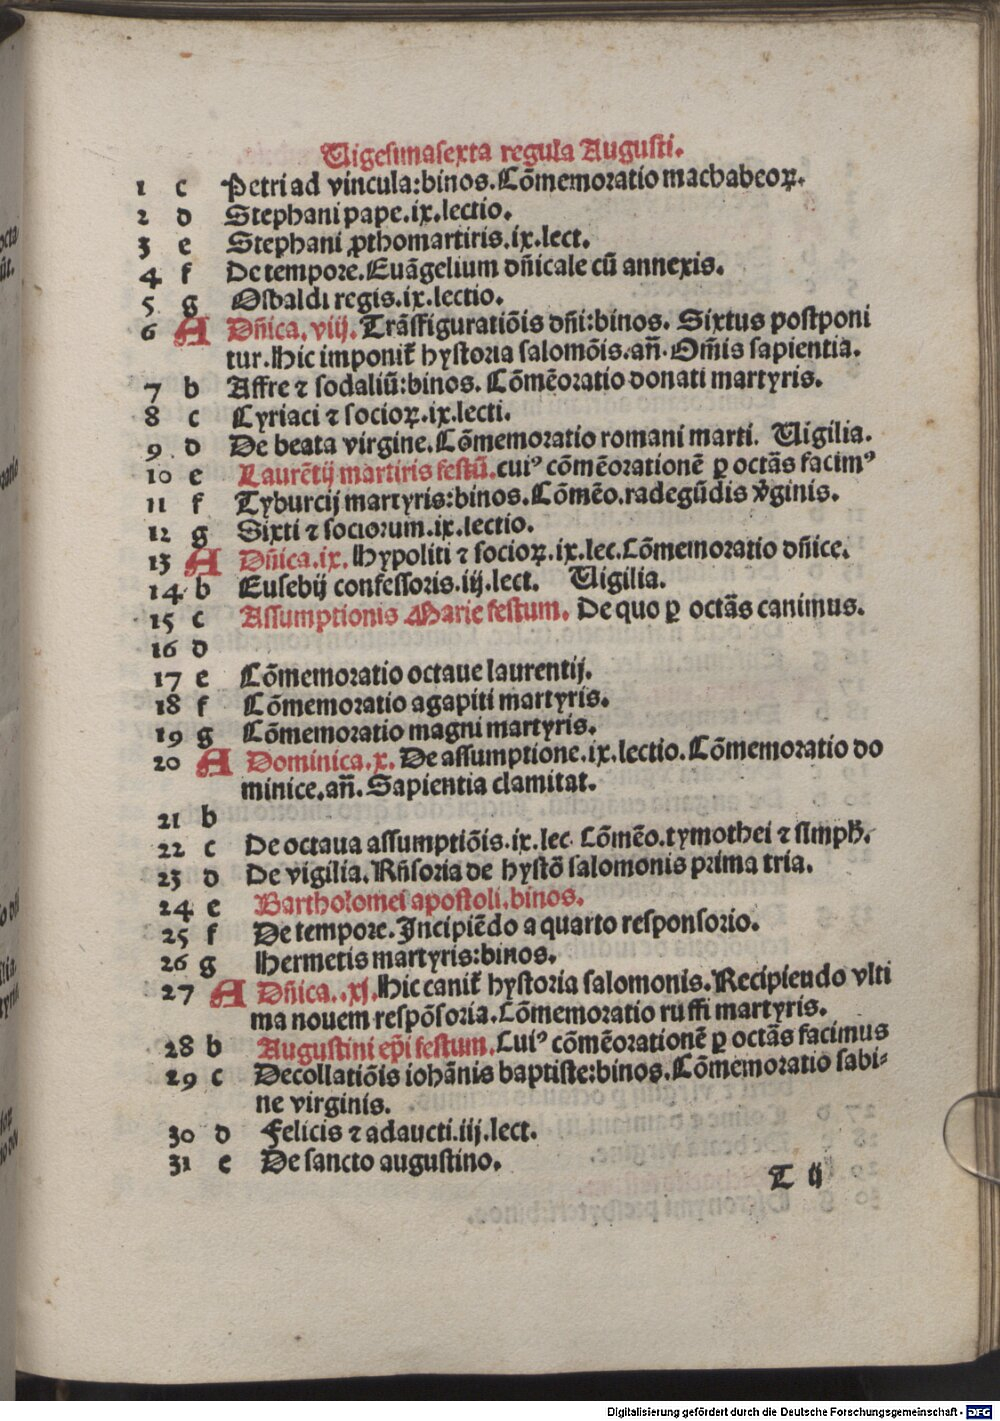 Vigesimasexta regula Augusti.
1 c Petri ad vincula:binos.Cōmemoratio machabeoꝝ.
2 d Stephani pape.ix.lectio.
3 e Stephani ꝓthomartiris.ix.lect.
4 f De tempore.Euāgelium dn̄icale cū annexis.
5 g Osbaldi regis.ix.lectio.
6 A Dn̄ica.viij.Trāsfiguratiōis dn̄i:binos. Sixtus postponi
tur.Hic imponit̄ hystoria salomōis.an̄.Om̄is sapientia.
7 b Affre ⁊ sodaliū:binos. Cōmēoratio donati martyris.
8 c Cyriaci ⁊ socioꝝ.ix.lecti.
9 d De beata virgine.Cōmemoratio romani marti. Vigilia.
10 e Laurētij martiris festū.cuiꝰ cōmēorationē ꝑ octās facimꝰ
11 f Tyburcij martyris:binos.Cōmēo.radegūdis v̄ginis.
12 g Sixti ⁊ sociorum.ix.lectio.
13 A Dn̄ica.ix.Hypoliti ⁊ socioꝝ.ix.lec.Cōmemoratio dn̄ice.
14 b Eusebij confessoris.iij.lect. Vigilia.
15 c Assumptionis Marie festum. De quo ꝑ octās canimus.
16 d
17 e Cōmemoratio octaue laurentij.
18 f Cōmemoratio agapiti martyris.
19 g Cōmemoratio magni martyris.
20 A Dominica.x.De assumptione.ix.lectio.Cōmemoratio do
minice.an̄.Sapientia clamitat.
21 b
22 c De octaua assumptiōis.ix.lec. Cōmēo.tymothei ⁊ simph̄.
23 d De vigilia.Rn̄soria de hystō salomonis prima tria.
24 e Bartholomei apostoli.binos.
25 f De tempore.Incipiēdo a quarto responsorio.
26 g Hermetis martyris:binos.
27 A Dn̄ica..xj.Hic canit̄ hystoria salomonis.Recipiendo vlti
ma nouem respōsoria.Cōmemoratio ruffi martyris.
28 b Augustini ep̄i festum.Cuiꝰ cōmēorationē ꝑ octās facimus
29 c Decollatiōis iohānis baptiste:binos.Cōmemoratio sabi⸗
ne virginis.
30 d Felicis ⁊ adaucti.iij.lect.
31 e De sancto augustino.
T ij
Digitalisierung gefördert durch die Deutsche Forschungsgemeinschaft - DFG